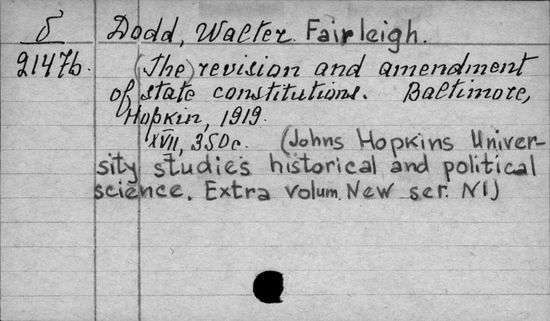 δ Dodd, Walter Fairleigh.
21476. (The) revision and amendment
of state constitutions. Baltimore,
Hopkin, 1919.
XVII, 350c. (Johns Hopkins Univer-
sity studies historical and political
science. Extra volum. New ser. N1)